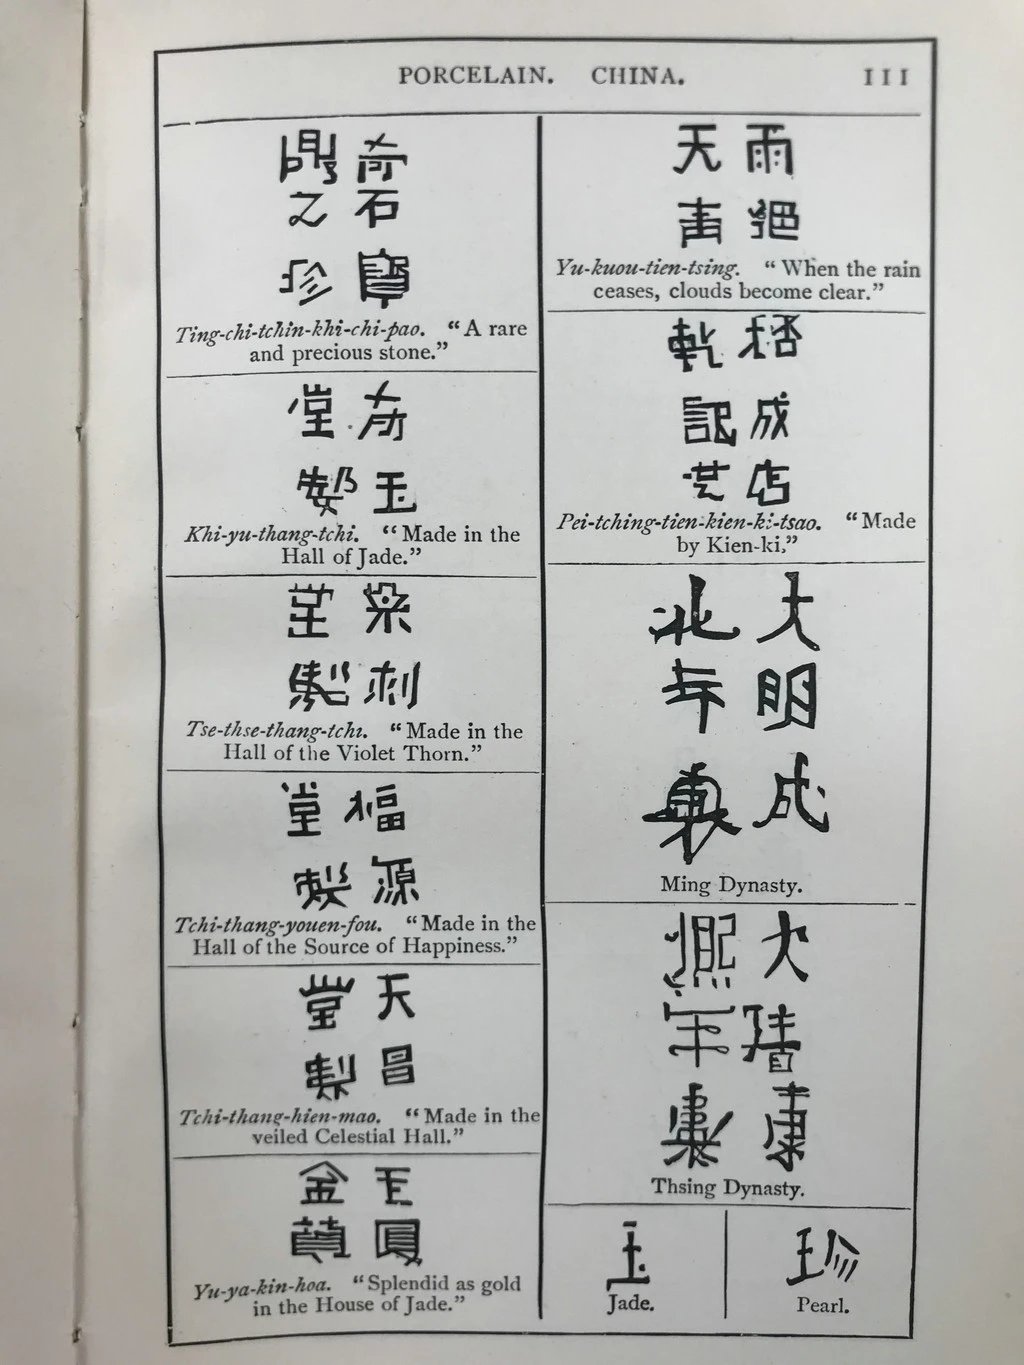 PORCELAIN. CHINA. 111
奇石寶
鼎之珍
Ting-chi-tchin-khi-chi-pao. “A rare
and precious stone.”
奇玉
堂製
Khi-yu-thang-tchi. “Made in the
Hall of Jade.”
刺
堂製
Tse-thse-thang-tchi. “Made in the
Hall of the Violet Thorn.”
福源
堂製
Tchi-thang-youen-fou. “Made in the
Hall of the Source of Happiness.”
天昌
堂製
Tchi-thang-hien-mao. “Made in the
veiled Celestial Hall.”
玉
金
Yu-ya-kin-hoa. “Splendid as gold
in the House of Jade.”
雨過
天青
Yu-kuou-tien-tsing. “When the rain
ceases, clouds become clear.”
成店
乾記
Pei-tching-tien-kien-ki-tsao. “Made
by Kien-ki,”
大明成
化年製
Ming Dynasty.
大清康
熙年製
Thsing Dynasty.
玉
Jade.
珍
Pearl.